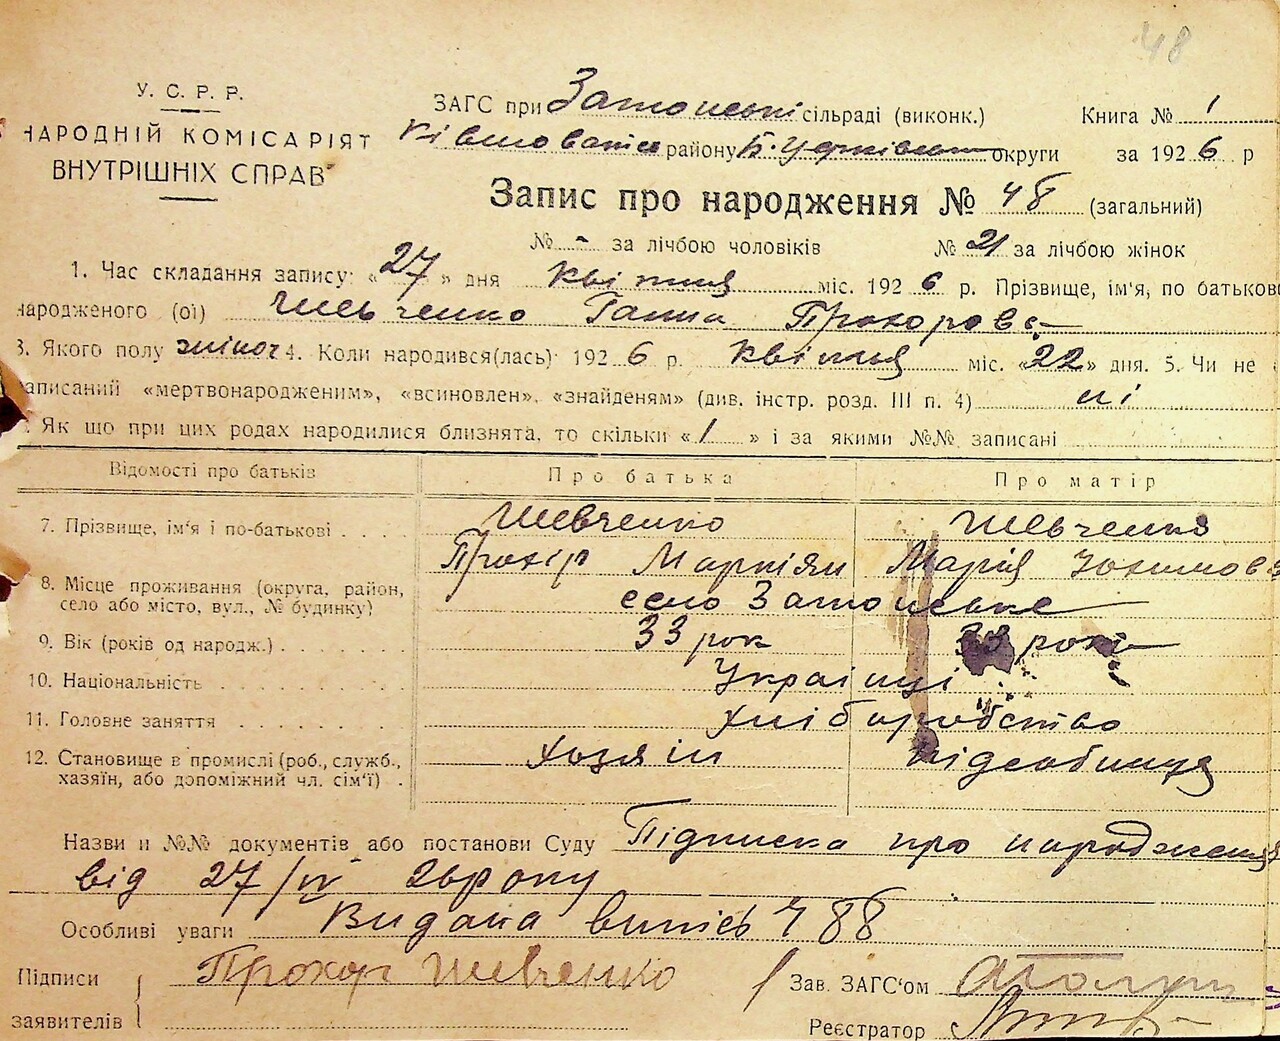 48
У. С. Р. Р.
НАРОДНІЙ КОМІСАРІЯТ
ВНУТРІШНІХ СПРАВ
ЗАГС при Затонські сільраді (виконк.)
Книга № 1
району Б. Церківськ округи
за 1926 р
Запис про народження № 48 (загальний)
№ - за лічбою чоловіків № 21 за лічбою жінок
1. Час складання запису: «27» дня квітня міс. 1926 р. Прізвище, ім'я, по батькові
народженого (ої) Шевченко Ганна Прохорова
3. Якого полу жіноч 4. Коли народився(лась) 1926 р. квітня міс. «22» дня. 5. Чи не
записаний «мертвонародженим», «всиновлен», «знайденям» (див. інстр. розд. III п. 4) ні
Як що при цих родах народилися близнята, то скільки «1» і за якими №№ записані
Відомості про батьків Про батька Про матір
7. Прізвище, ім'я і по-батькові Шевченко Шевченко
Прохір Маркіян Марія Юхимова
8. Місце проживання (округа, район,
село або місто, вул., № будинку) село Затонське
9. Вік (років од народж.) 33 рок рокі
10. Національність Українці
11. Головне заняття хліборобство
12. Становище в промислі (роб., служб.,
хазяїн, або допоміжний чл. сім'ї) хозяін підсобниця
Назви и №№ документів або постанови Суду Підписка про народження
від 27/IV 26 року
Особливі уваги Видана випісь 488
Підписи
заявителів
Прохор Шевченко
Зав. ЗАГС'ом
Реєстратор